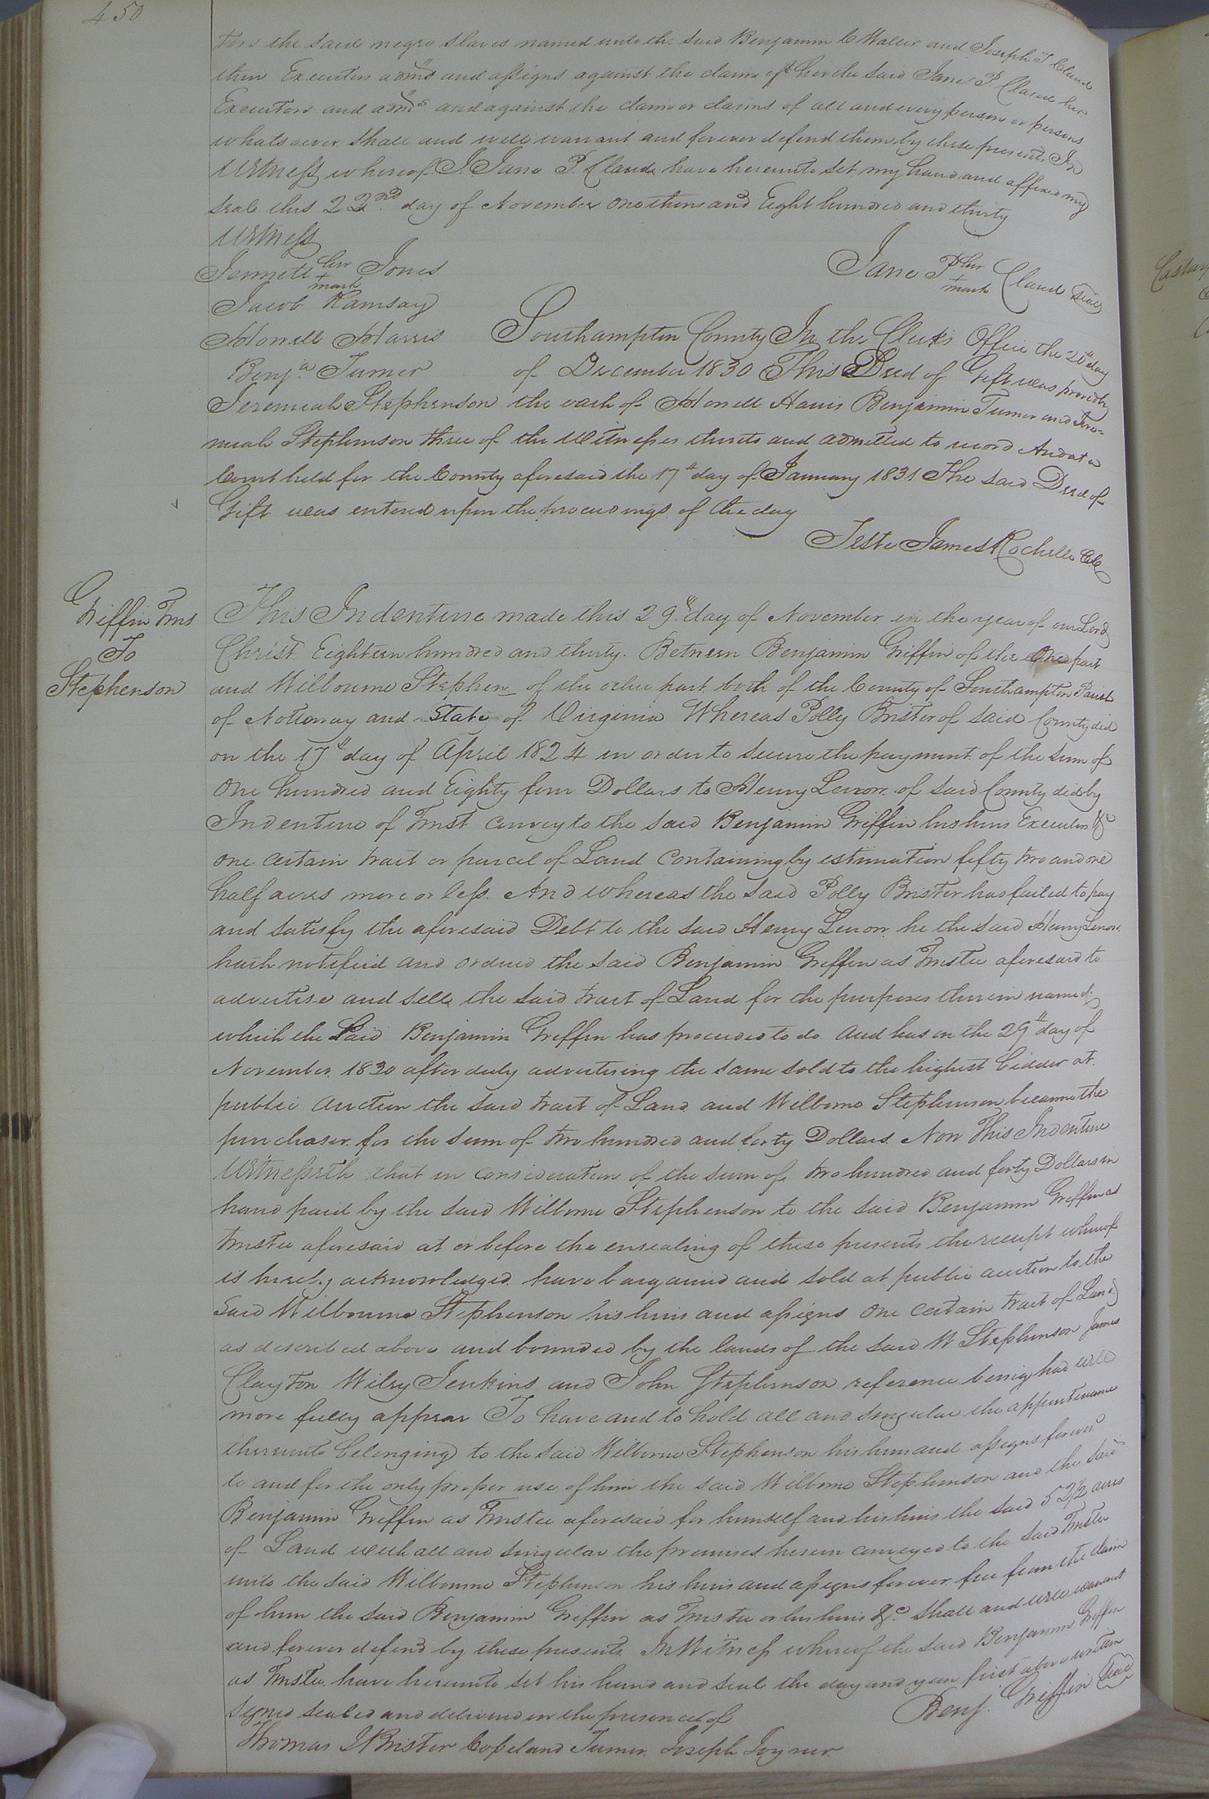 450
tors the said negro slaves named unto the said Benjamin C Waller and Joseph T Claud
their Executors adms and assigns against the claim of her the said Jane P. Claud her
Executors and adms and against the claim or claims of all and every person or persons
whatsoever shall and will warrant and forever defend them by these presents In
Witness whereof I Jane P. Claud have hereunto set my hand and affixed my
seal this 22nd day of November one thousand Eight hundred and thirty
Witness
Jennett her mark Jones
Jane P her mark Claud Seal
Jacob Ramsay
Howell Harris
Southampton County In the Clerks Office the 20th day
Benja Turner
of December 1830 This Deed of Gift was proved by
Jeremiah Stephenson
the oath of Howell Harris Benjamin Turner and Jere-
miah Stephenson three of the Witnesses thereto and admitted to record And at a
Court held for the County aforesaid the 17th day of January 1831 The said Deed of
Gift was entered upon the proceedings of the day
Teste James Rochelle Clk
Griffin Trus
To
Stephenson
This Indenture made this 29th day of November in the year of our Lord
Christ Eighteen hundred and thirty. Between Benjamin Griffin of the One part
and Wilbourne Stephen of the other part both of the County of Southampton Parish
of Nottoway and State of Virginia Whereas Polly Brister of said County did
on the 17th day of April 1824 in order to secure the payment of the sum of
One hundred and Eighty four Dollars to Henry Lenow of said County did by
Indenture of Trust convey to the said Benjamin Griffin his heirs Executors &c
one certain tract or parcel of Land containing by estimation fifty two and one
half acres more or less. And whereas the said Polly Brister has failed to pay
and satisfy the aforesaid Debt to the said Henry Lenow he the said Henry Lenow
hath notified and ordered the said Benjamin Griffin as Trustee aforesaid to
advertise and sell the said tract of Land for the purposes therein named
which the said Benjamin Griffin has proceeded to do and has on the 29th day of
November 1830 after duly advertising the same sold to the highest bidder at
public auction the said tract of Land and Wilborne Stephenson became the
purchaser for the sum of two hundred and forty Dollars. Now This Indenture
Witnesseth that in consideration of the sum of two hundred and forty Dollars in
hand paid by the said Wilborne Stephenson to the said Benjamin Griffin as
trustee aforesaid at or before the ensealing of these presents the receipt whereof
is hereby acknowledged have bargained and sold at public auction to the
said Wilbourne Stephenson his heirs and assigns One certain tract of Land
as described above and bounded by the lands of the said W Stephenson James
Clayton Wiley Jenkins and John Stephenson reference being had will
more fully appear To have and to hold all and singular the appurtenance
thereunto belonging to the said Wilborne Stephenson his heirs and assigns forever
to and for the only proper use of him the said Wilborne Stephenson and the said
Benjamin Griffin as Trustee aforesaid for himself and his heirs the said 52 1/2 acres
of Land with all and singular the premises herein conveyed to the said Trustee
unto the said Wilbourne Stephenson his heirs and assigns forever free from the claim
of him the said Benjamin Griffin as Trustee or his heirs &c. shall and will warrant
and forever defend by these presents In Witness whereof the said Benjamin Griffin
as Trustee have hereunto set his hand and seal the day and year first above written
Signed sealed and delivered in the presence of
Benj. Griffin Seal
Thomas J Brister Copeland Turner Joseph Joyner